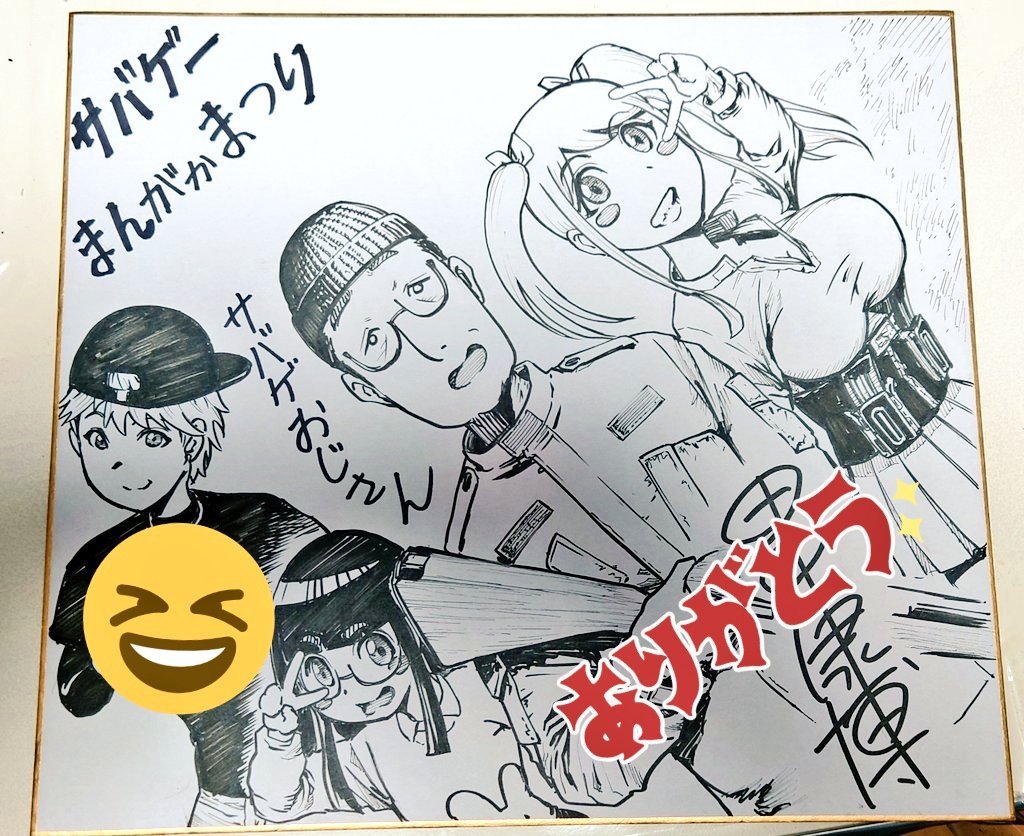 サバゲー
まんがかまつり
サバゲおじたん
ありがとう